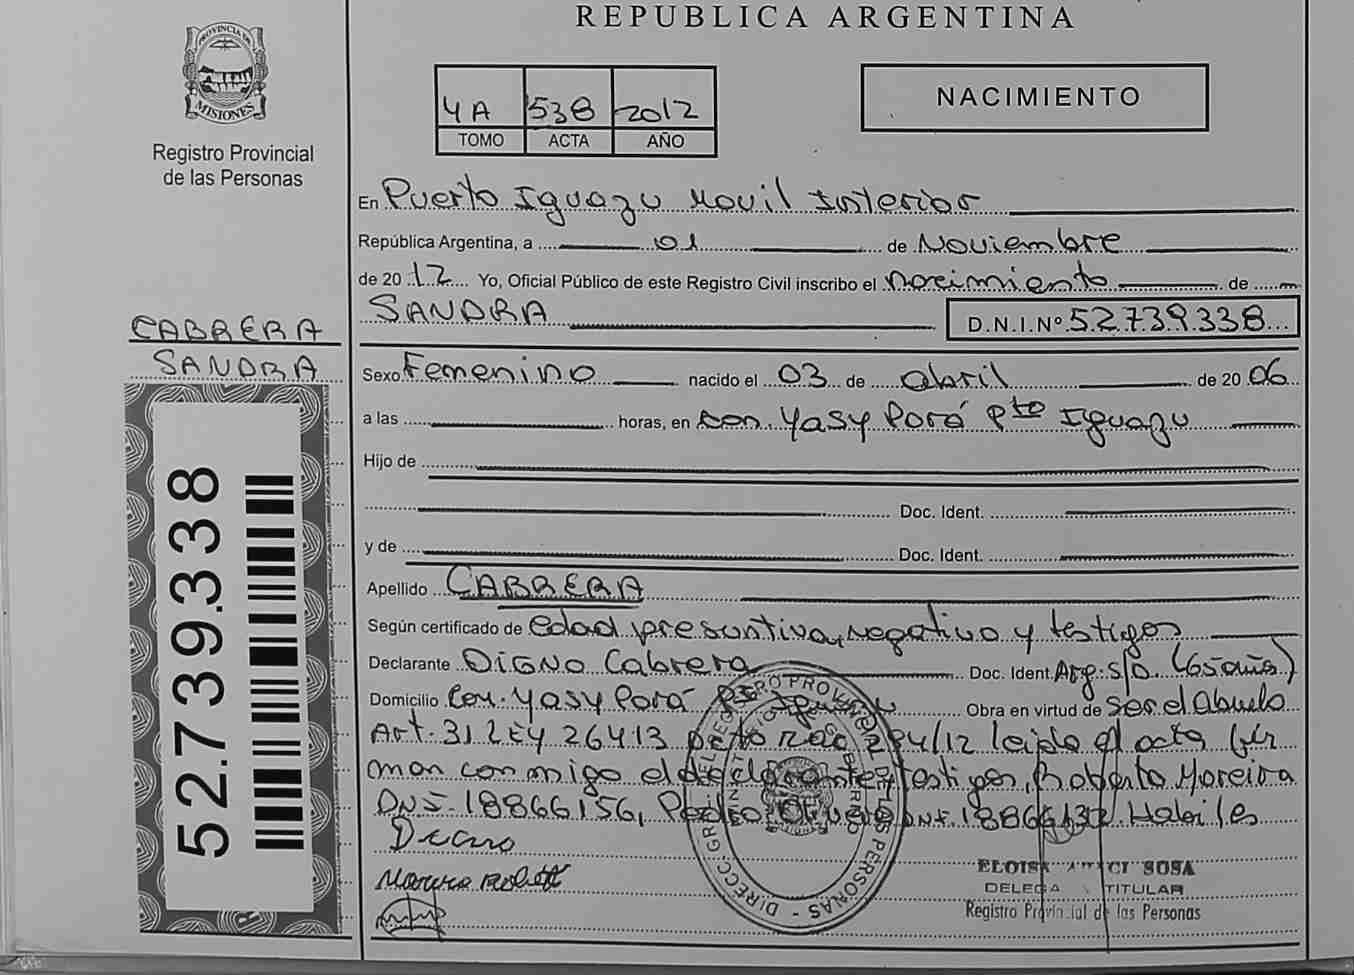 REPUBLICA ARGENTINA
PROVINCIA DE
MISIONES
Registro Provincial
de las Personas
4A 538 2012
TOMO ACTA AÑO
NACIMIENTO
En Puerto Iguazu Movil Interior
República Argentina, a 01 de Noviembre
de 2012 Yo, Oficial Público de este Registro Civil inscribo el nacimiento de
SANDRA D.N.I.Nº 52739338
CABRERA
SANDRA
Sexo Femenino nacido el 03 de abril de 2006
a las horas, en com. Yasy Porá Pto Iguazu
Hijo de
Doc. Ident.
y de Doc. Ident.
Apellido CABRERA
Según certificado de edad presuntiva, negativo y testigos
Declarante Digno Cabrera Doc. Ident. Arg. s/D. (65 años)
Domicilio Com. Yasy Porá Pto Iguazu Obra en virtud de ser el abuelo
Art. 31 LEY 26413 Dcto 234/12 leida el acta fir
man conmigo el declarante, testigos, Roberto Moreira
DNI. 18866156, Pedro DNI. Habiles
52.739.338
ELOISA SOSA
DELEGADA TITULAR
Registro Provincial de las Personas
DIRECC. GRAL. DEL REGISTRO PROVINCIAL DE LAS PERSONAS